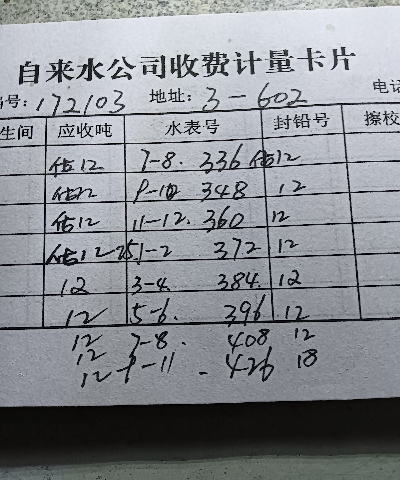 自来水公司收费计量卡片
号: 172103 地址: 3-602 电话
生间 应收吨 水表号 封铅号 擦校
估12 7-8. 336 估12
估12 9-10 348 12
估12 11-12. 360 12
估12 25.1-2 372 12
12 3-4 384. 12
12 5-6. 396. 12
12 7-8. 408 12
12
12 9-11 - 426 18